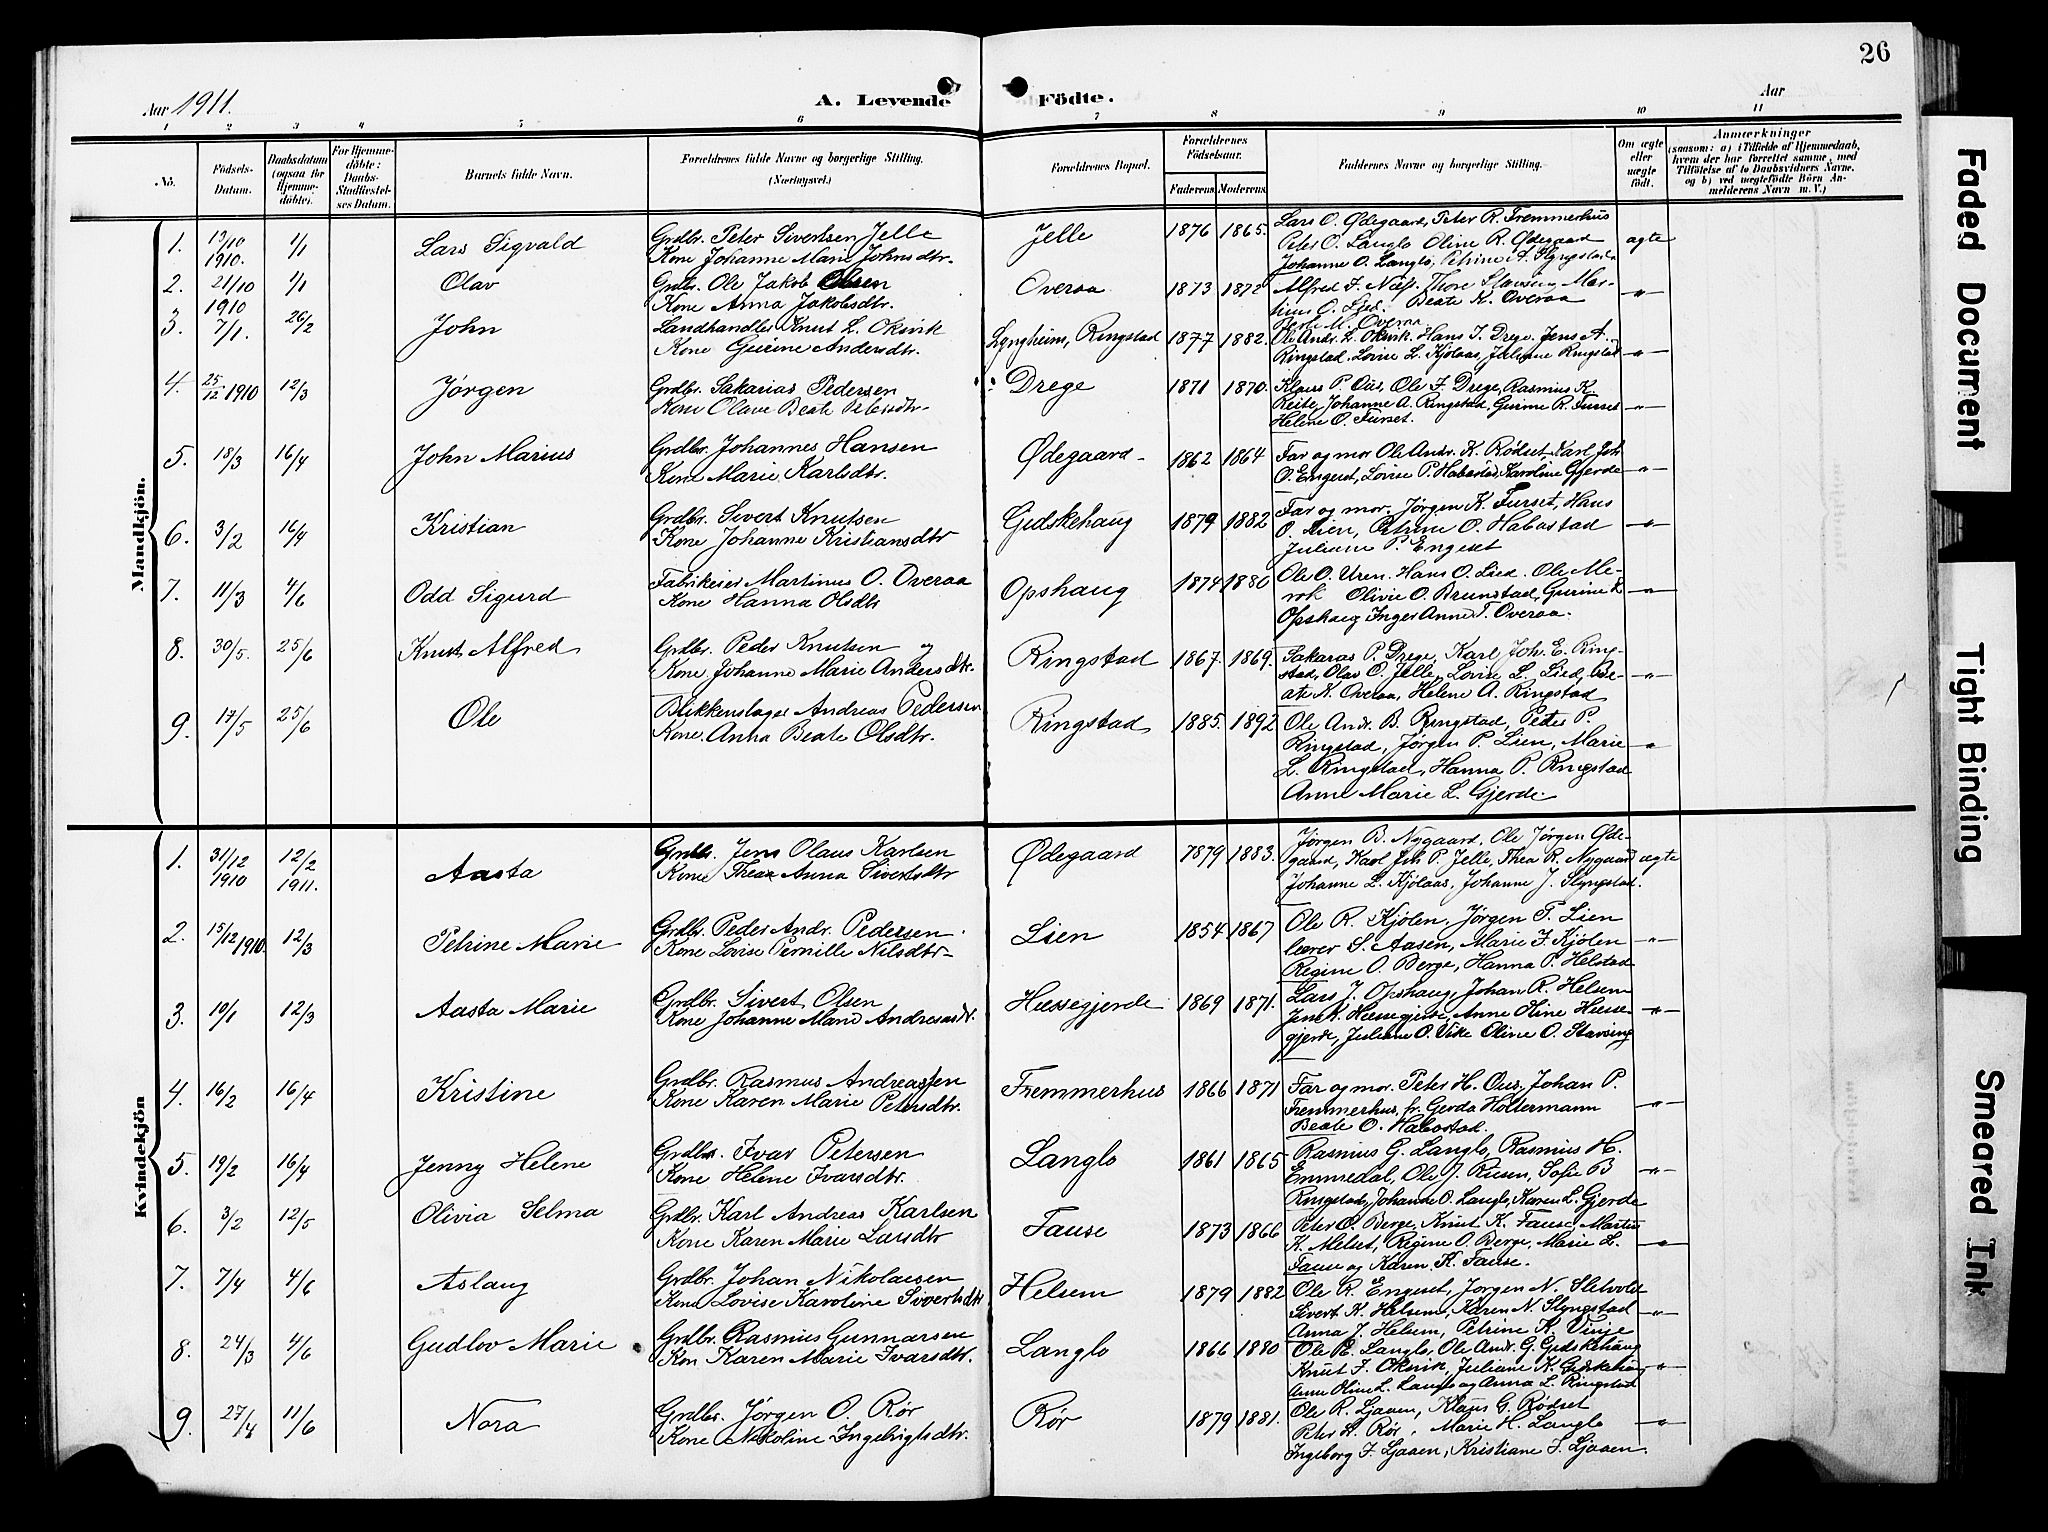 26
Aar 1911.
A. Levende Födte.
Aar
1 2 3 4 5 6 7 8 9 10 11
No.
Födsels-Datum.
Daabsdatum (ogsaa for Hjemmedöbte).
For Hjemmedöbte: Daabs-Stadfæstelses Datum.
Barnets fulde Navn.
Forældrenes fulde Navne og borgerlige Stilling.
(Næringsvei.)
Forældrenes Bopæl.
Forældrenes Födselsaar.
Faderens. Moderens.
Faddernes Navne og borgerlige Stilling.
Om ægte eller uægte födt.
Anmærkninger
(saasom: a) i Tilfælde af Hjemmedaab, hvem der har forrettet samme, med Tilföielse af to Daabsvidners Navne, og b) ved uægtefödte Börn Anmelderens Navn m. V.)
Mandkjön.
1. 13/10 1910. 1/1 Lars Sigvald Grdbr. Peter Sivertsen Jelle Jelle 1876 1865. Lars O. Ødegaard, Peter R. Fremmerhus ægte
Kone Johanne Marie Johnsdtr. Peter O. Langlo Oline R. Ødegaard
Johanne O. Langlo, Petrine A. Slyngstad
2. 21/10 1910 1/1 Olav Grdbr. Ole Jakob Olsen Overaa 1873 1872 Alfred J. Næss. Thore Stavseng Mar- "
Kone Anna Jakobsdtr. tius O. Lied. Beate K. Overaa
Berte M. Overaa
3. 7/1. 26/2 John Landhandler Knut L. Okvik Lyngheim, Ringstad 1877 1882. Ole Andr. L. Okvik. Hans I. Drege. Jens A. "
Kone Gurine Andersdtr. Ringstad. Lovise L. Kjølaas, Juliane Ringstad
4. 25/12 1910 12/3 Jørgen Grdbr. Sakarias Pedersen Drege 1871 1870. Klaus P. Ous, Ole J. Drege, Rasmus K. "
Kone Olave Beate Petersdtr. Reite, Johanne A. Ringstad, Gurine R. Furset
Helene O. Furset.
5. 18/3 16/4 John Marius Grdbr. Johannes Hansen Ødegaard 1862 1864 Far og mor Ole Andr. K. Rødset Karl Joh "
Kone Marie Karlsdtr. O. Engeset, Lovise P. Habostad, Karoline Gjerde
6. 3/2 16/4 Kristian Grdbr. Sivert Knutsen Gudskehaug 1879 1882 Far og mor. Jørgen K. Furset, Hans "
Kone Johanne Kristiansdtr O. Lien, Petrine O. Habostad
Juliane P. Engeset
7. 11/3 4/6 Odd Sigurd Fabrikeier Martinus O. Overaa Opshaug 1874 1880 Ole O. Uren. Hans O. Lied. Ole Me- "
Kone Hanna Olsdtr rok Olivie O. Brunstad, Gurine K
Opshaug Inger Anne T. Overaa.
8. 30/5. 25/6 Knut Alfred Grdbr. Peder Knutsen og Ringstad 1867. 1869. Sakarias P. Drege, Karl Joh. E. Ring- "
Kone Johanne Marie Andersdtr. stad, Olav O. Jelle, Lovise L. Lied, Be-
ate K. Overaa, Helene A. Ringstad
9. 17/5 25/6 Ole Blikkenslager Andreas Pedersen Ringstad 1885. 1892 Ole Andr. B. Ringstad, Peter P. "
Kone. Anna Beate Olsdtr. Ringstad, Jørgen P. Lien, Marie
L. Ringstad, Hanna P. Ringstad
Anne Marie L. Gjerde.
Kvindekjön
1. 31/12 1910 12/2 1911. Aasta Grdbr. Jens Olaus Karlsen Ødegaard 1879 1883. Jørgen B. Nygaard, Ole Jørgen Øde- ægte
Kone Thea Anna Sivertsdtr gaard, Karl Joh P. Jelle, Thea R. Nygaard
Johanne L. Kjølaas, Johanne J. Slyngstad.
2. 15/12 1910. 12/3 Petrine Marie Grdbr. Peder Andr. Pedersen Lien 1854 1867 Ole R. Kjølen, Jørgen T. Lien "
Kone Lovise Pernille Nilsdtr lærer S. Aasen, Marie J. Kjølen
Regine O. Berge, Hanna P. Helstad
3. 10/1 12/3 Aasta Marie Grdbr. Sivert Olsen Hussegjerde 1869 1871. Lars J. Opshaug, Johan R. Helsem "
Kone Johanne Marie Andreasdtr. Jens K. Hussegjerde, Anne Oline Husse-
gjerde, Juliane O. Vike Oline O. Stavseng
4. 16/2 16/4 Kristine Grdbr. Rasmus Andreassen Fremmerhus 1866 1871 Far og mor. Peter H. Ous, Johan P. "
Kone Karen Marie Petersdtr. Fremmerhus, fr. Gerda Holtermann
Beate O. Habostad.
5. 19/2 16/4 Jenny Helene Grdbr. Ivar Petersen Langlo 1861 1865 Rasmus G. Langlo, Rasmus H. "
Kone Helene Ivarsdtr. Emmedal, Ole J. Riisen, Sofie B
Ringstad, Johanne O. Langlo, Karen L. Gjerde
6. 3/2 12/5 Olivia Selma Grdbr. Karl Andreas Karlsen Fause 1873 1866 Peter O. Berge, Knut K. Fause, Martin "
Kone Karen Marie Larsdtr K. Melset, Regine O. Berge, Marie L.
Fause og Karen K. Fause.
7. 7/4 4/6 Aslaug Grdbr. Johan Nikolaisen Helsem 1879 1882 Ole R. Engeset, Jørgen N. Sletvold "
Kone Lovise Karoline Sivertsdtr Sivert K. Helsem, Karen N. Slyngstad
Anna J. Helsem, Petrine K. Vinje
8. 24/3 4/6 Gudlov Marie Grdbr. Rasmus Gunnarsen Langlo 1866 1880 Ole E. Langlo, Ole Andr. G. Gudskehaug "
Kon Karen Marie Ivarsdtr. Knut J. Okvik, Juliane K. Gudskehaug
Anne Oline L. Langlo og Anna L. Ringstad
9. 27/4 11/6 Nora Grdbr. Jørgen O. Rör Rör 1879 1881. Ole R. Ljaaen, Klaus G. Rødset "
Kone Nikoline Ingebrigtsdtr. Peter H. Rör, Marie H. Langlo
Ingeborg J. Ljaaen, Kristiane J. Ljaaen.
Faded Document
Tight Binding
Smeared Ink